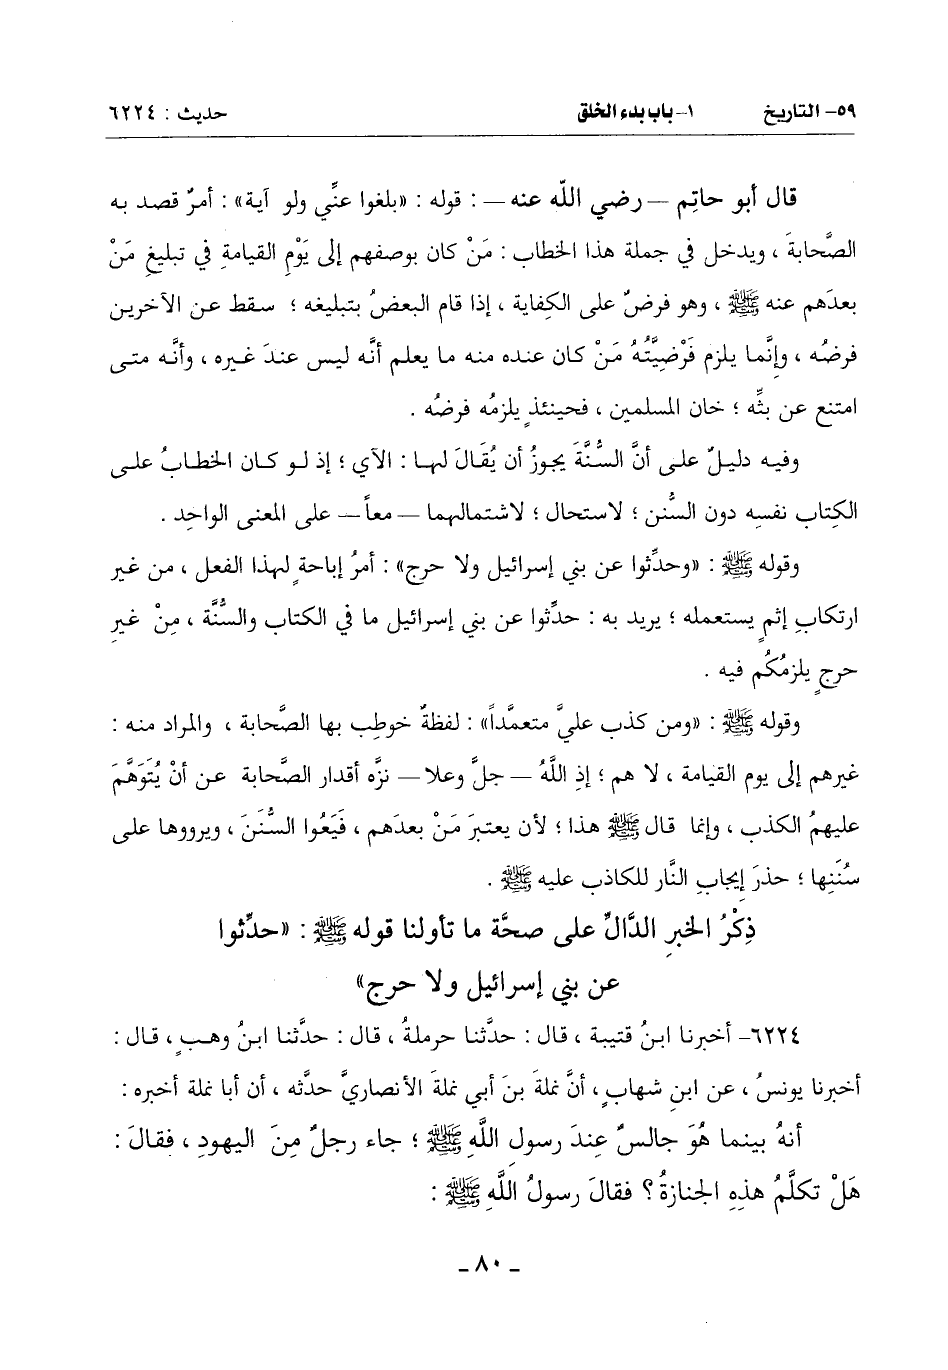 ٥٩- التاريخ ١- باب بدء الخلق حديث : ٦٢٢٤
قال أبو حاتِم — رضي اللَّه عنه — : قوله : «بلغوا عنِّي ولو آية» : أمرٌ قصد به
الصَّحابةَ ، ويدخل في جملة هذا الخطاب : مَنْ كان بوصفهم إلى يَوْمِ القيامةِ في تبليغِ مَنْ
بعدَهم عنه ﷺ ، وهو فرضٌ على الكِفاية ، إذا قام البعضُ بتبليغه ؛ سقط عن الآخرين
فرضُه ، وإنَّما يلزم فَرْضِيَّتُهُ مَنْ كان عنده منه ما يعلم أنَّه ليس عندَ غيره ، وأنَّه متى
امتنع عن بثِّه ؛ خان المسلمين ، فحينئذٍ يلزمُه فرضُه .
وفيه دليلٌ على أنَّ السُّنَّةَ يجوزُ أن يُقَالَ لها : الآي ؛ إذ لو كان الخطابُ على
الكِتاب نفسِه دون السُّنن ؛ لاستحال ؛ لاشتمالهما — معاً — على المعنى الواحِد .
وقوله ﷺ : «وحدِّثوا عن بني إسرائيل ولا حرج» : أمرُ إباحةٍ لهذا الفعل ، من غير
ارتكابِ إثمٍ يستعمله ؛ يريد به : حدِّثوا عن بني إسرائيل ما في الكتاب والسُّنَّة ، مِنْ غيرِ
حرجٍ يلزمُكُم فيه .
وقوله ﷺ : «ومن كذب عليَّ متعمَّداً» : لفظةٌ خوطِب بها الصَّحابة ، والمراد منه :
غيرهم إلى يوم القيامة ، لا هم ؛ إذِ اللَّهُ — جلَّ وعلا — نزَّه أقدار الصَّحابة عن أنْ يُتَوَهَّمَ
عليهمُ الكذب ، وإنما قال ﷺ هذا ؛ لأن يعتبرَ مَنْ بعدَهم ، فَيَعُوا السُّنَنَ ، ويرووها على
سُنَنِها ؛ حذرَ إيجابِ النَّار للكاذب عليه ﷺ .
ذِكْرُ الخبرِ الدَّالِّ على صحَّة ما تأولنا قوله ﷺ : «حدِّثوا
عن بني إسرائيل ولا حرج»
٦٢٢٤- أخبرنا ابنُ قتيبة ، قال : حدَّثنا حرملةُ ، قال : حدَّثنا ابنُ وهبٍ ، قال :
أخبرنا يونسُ ، عن ابنِ شهابٍ ، أنَّ نملةَ بنَ أبي نملةَ الأنصاريَّ حدَّثه ، أن أبا نملة أخبره :
أنهُ بينما هُوَ جالسٌ عِندَ رسول اللَّهِ ﷺ ؛ جاء رجلٌ مِنَ اليهودِ ، فقالَ :
هَلْ تكلَّمُ هذِهِ الجنازةُ ؟ فقالَ رسولُ اللَّهِ ﷺ :
- ٨٠ -